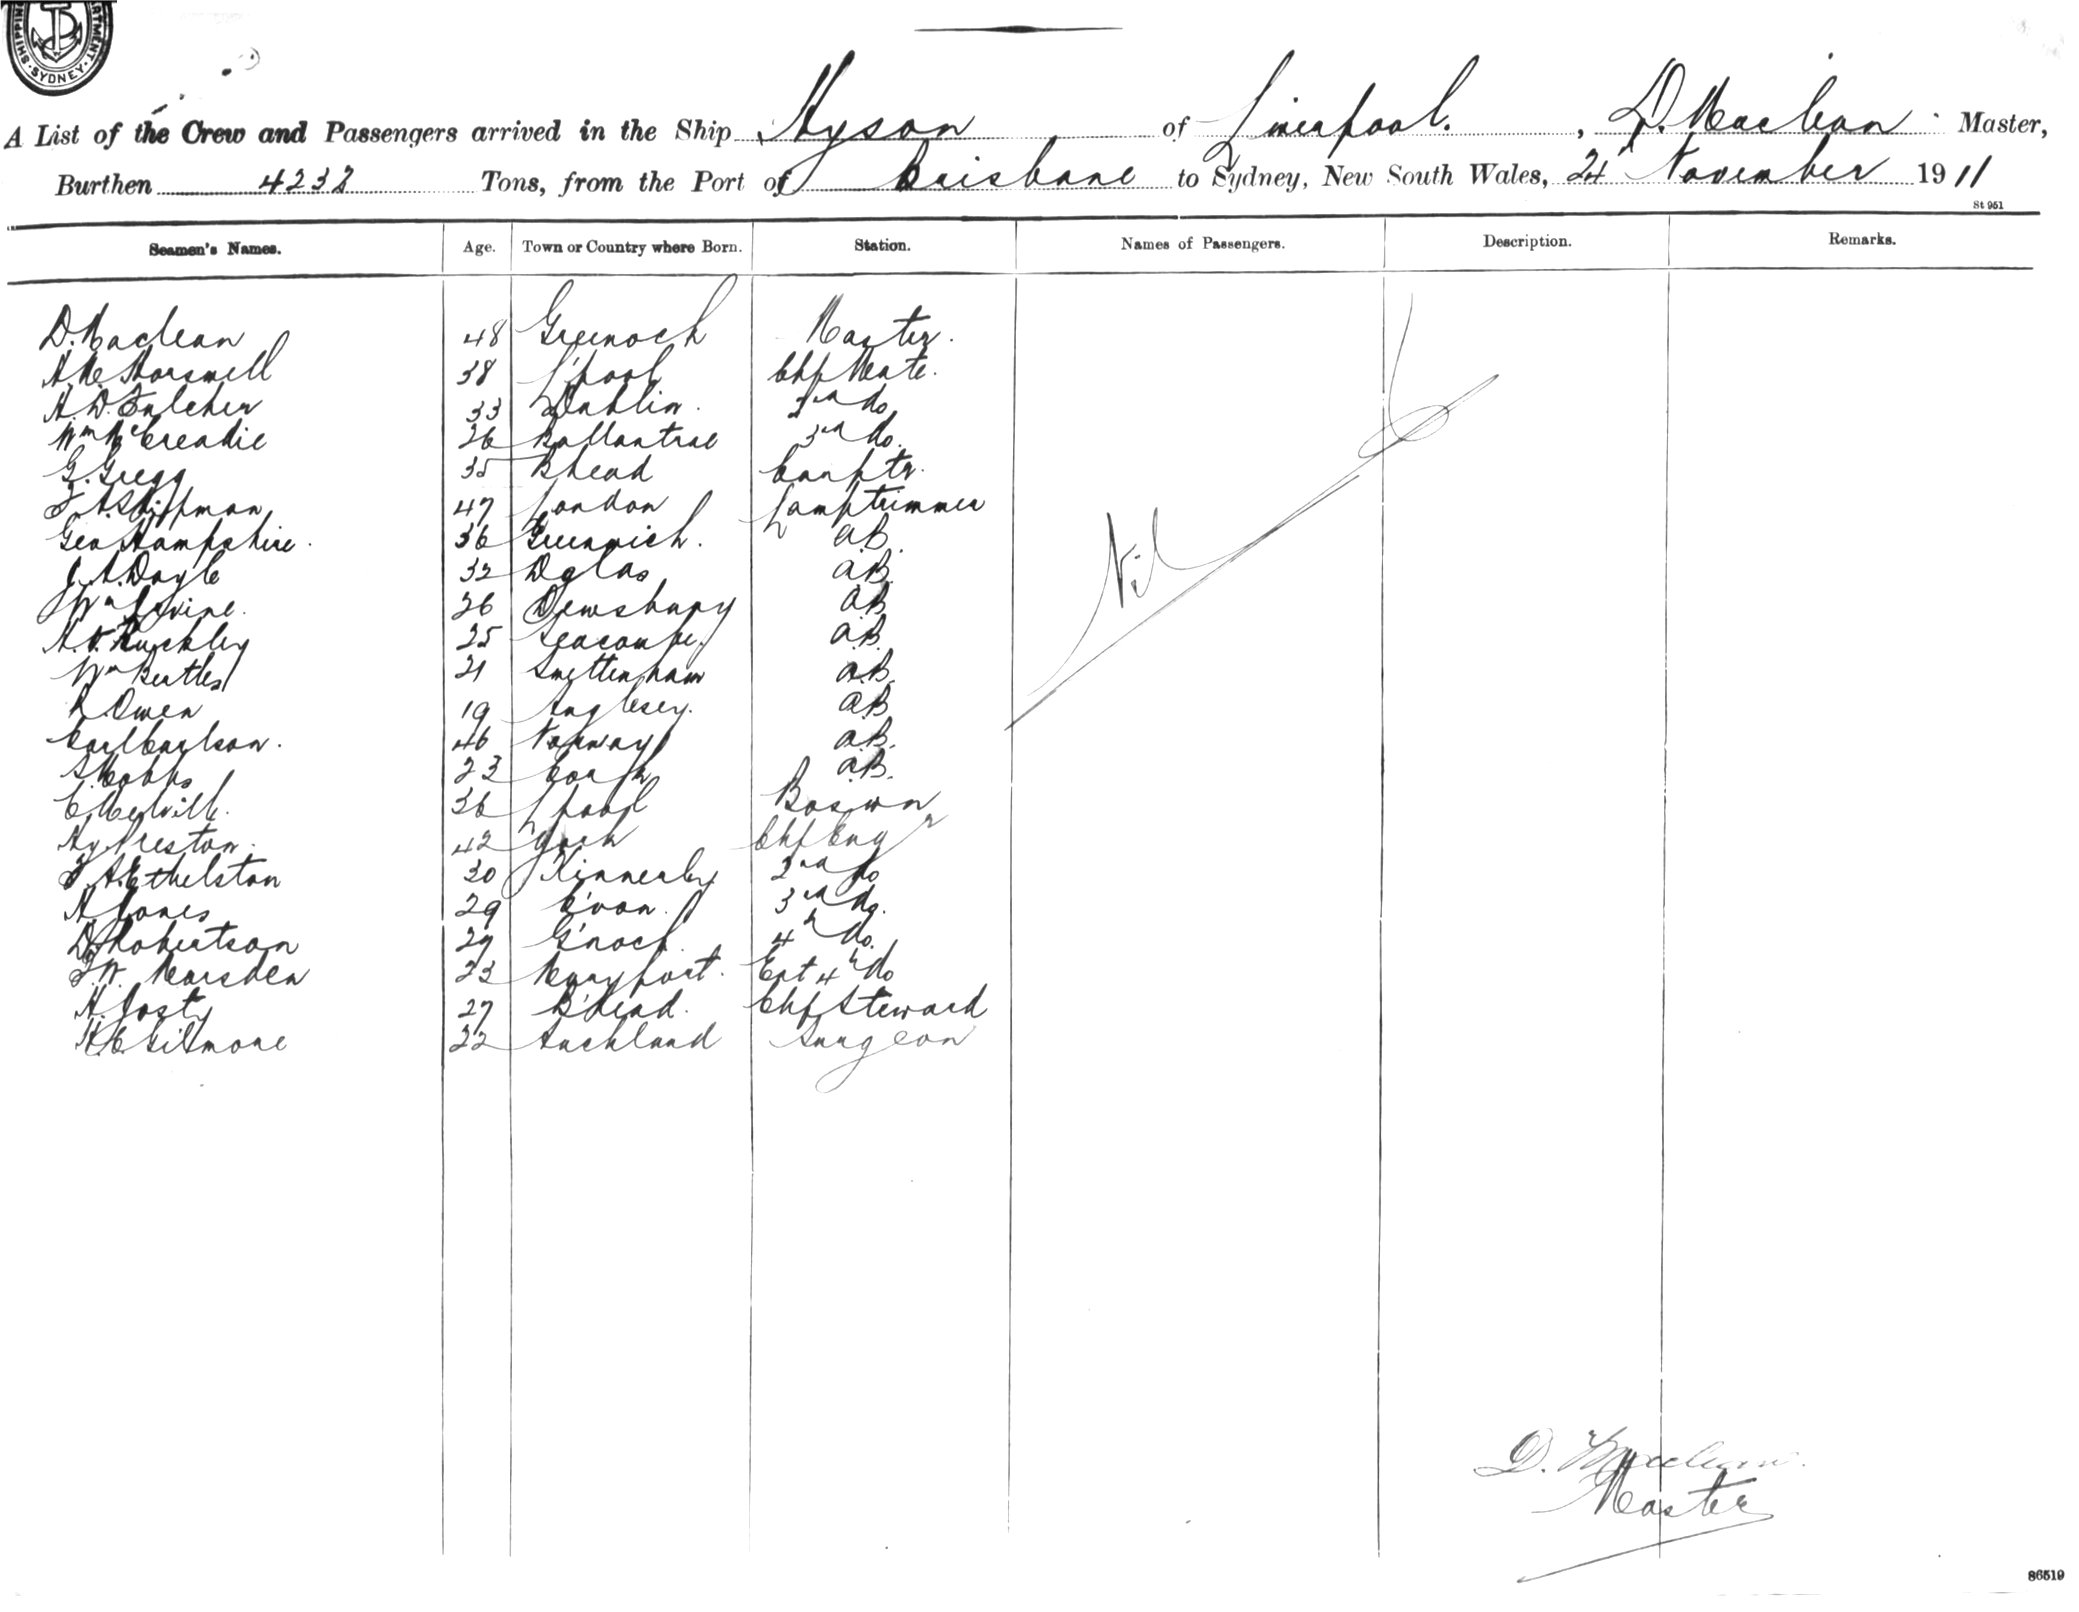 SHIPPING DEPARTMENT. SYDNEY.
A List of the Crew and Passengers arrived in the Ship Hyson of Liverpool. , D. Maclean Master,
Burthen 4238 Tons, from the Port of Brisbane to Sydney, New South Wales, 24 November 1911
St 951
Seamen's Names. Age. Town or Country where Born. Station. Names of Passengers. Description. Remarks.
D. Maclean 48 Greenock Master.
38 L'pool Chf Mate.
H. D. Fulcher 33 Dublin. 2nd Do
Wm McCreadie 26 Ballantrae 3rd Do.
G. Gregg 35 Bhead Carptr.
Shipman 47 London Lamptrimmer
Geo Hampshire. 36 Greenwich. AB.
J. A. Doyle 32 Dglas AB.
Wm Irvine. 26 Dewsbury AB
25 Seacombe. AB.
Wm Beatles 21 AB.
R Owen 19 Anglesey. AB
Carl Carlson. 46 Norway AB.
23 AB.
C Melvill. 36 L'pool Boswn
Hy Preston. 42 York Chf Engr
Ethelston 30 Kinnerley 2nd Do
H Jones 29 C'von. 3rd Do.
D Robertson 27 G'nock. 4th Do.
Marsden 23 Maryport. Ext 4th Do
H. Josty 27 B'head. Chf Steward
H. C. Gilmore 22 Auckland Surgeon
Nil
D. Maclean.
Master
86519